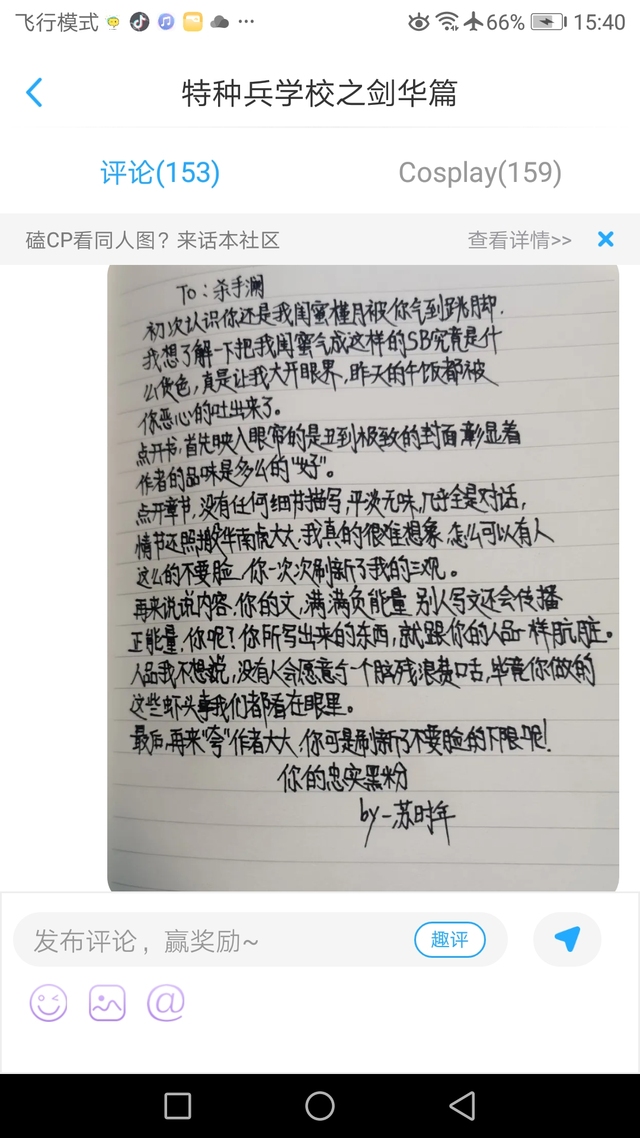 飞行模式 ... 66% 15:40
特种兵学校之剑华篇
评论(153) Cosplay(159)
磕CP看同人图？来话本社区 查看详情>>
To：杀手澜
初次认识你还是我闺蜜槿月被你气到跳脚.
我想了解一下把我闺蜜气成这样的SB究竟是什
么货色，真是让我大开眼界，昨天的午饭都被
你恶心的吐出来了。
点开书，首先映入眼帘的是丑到极致的封面，彰显着
作者的品味是多么的"好"。
点开章节，没有任何细节描写，平淡无味，几乎全是对话，
情节还照搬华南虎大大，我真的很难想象，怎么可以有人
这么的不要脸，你一次次刷新了我的三观。
再来说说内容，你的文，满满负能量，别人写文还会传播
正能量，你呢？你所写出来的东西，就跟你的人品一样肮脏。
人品我不想说，没有人会愿意与一个脑残浪费口舌，毕竟你做的
这些虾头事我们都看在眼里。
最后，再来"夸"作者大大，你可是刷新了不要脸的下限呢！
你的忠实黑粉
by-苏时年
发布评论，赢奖励~ 趣评